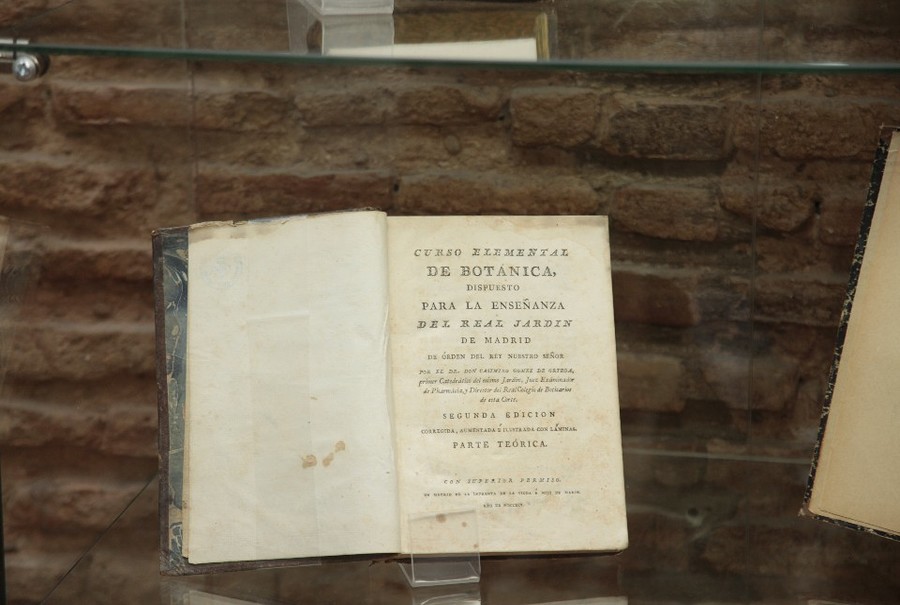 CURSO ELEMENTAL
DE BOTÁNICA,
DISPUESTO
PARA LA ENSEÑANZA
DEL REAL JARDIN
DE MADRID
DE ÓRDEN DEL REY NUESTRO SEÑOR
POR EL DR. DON CASIMIRO GOMEZ DE ORTEGA,
primer Catedrático del mismo Jardin, Juez Exâminador
de Pharmácia, y Director del Real Colegio de Boticarios
de esta Corte.
SEGUNDA EDICION
CORREGIDA, AUMENTADA É ILUSTRADA CON LÁMINAS.
PARTE TEÓRICA.
CON SUPERIOR PERMISO.
EN MADRID EN LA IMPRENTA DE LA VIUDA É HIJO DE MARIN
AÑO DE